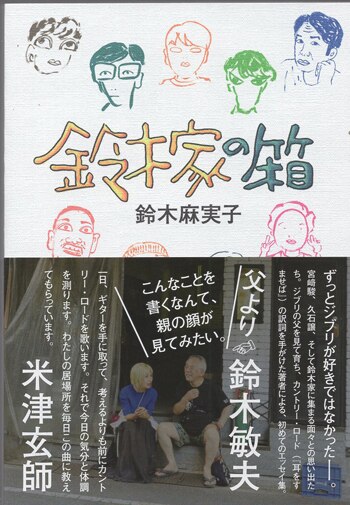 鈴木家の箱
鈴木麻実子
ずっとジブリが好きではなかった―。
宮﨑駿、久石譲、そして鈴木家に集まる面々との思い出た
ち。ジブリの父を見て育ち、カントリー・ロード（『耳をす
ませば』）の訳詞を手がけた著者による、初めてのエッセイ集。
父より
鈴木敏夫
こんなことを
書くなんて、
親の顔が
見てみたい。
一日、ギターを手に取って、考えるよりも前にカント
リー・ロードを歌います。それで今日の気分と体調
を測ります。わたしの居場所を毎日この曲に教え
てもらっています。
米津玄師